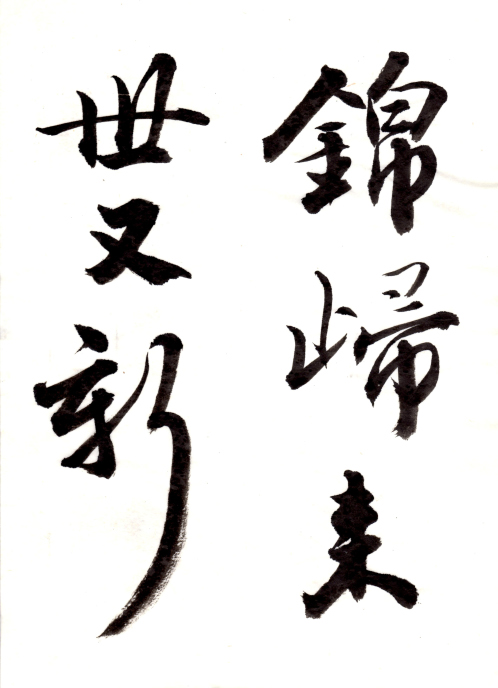 錦歸来
世又新